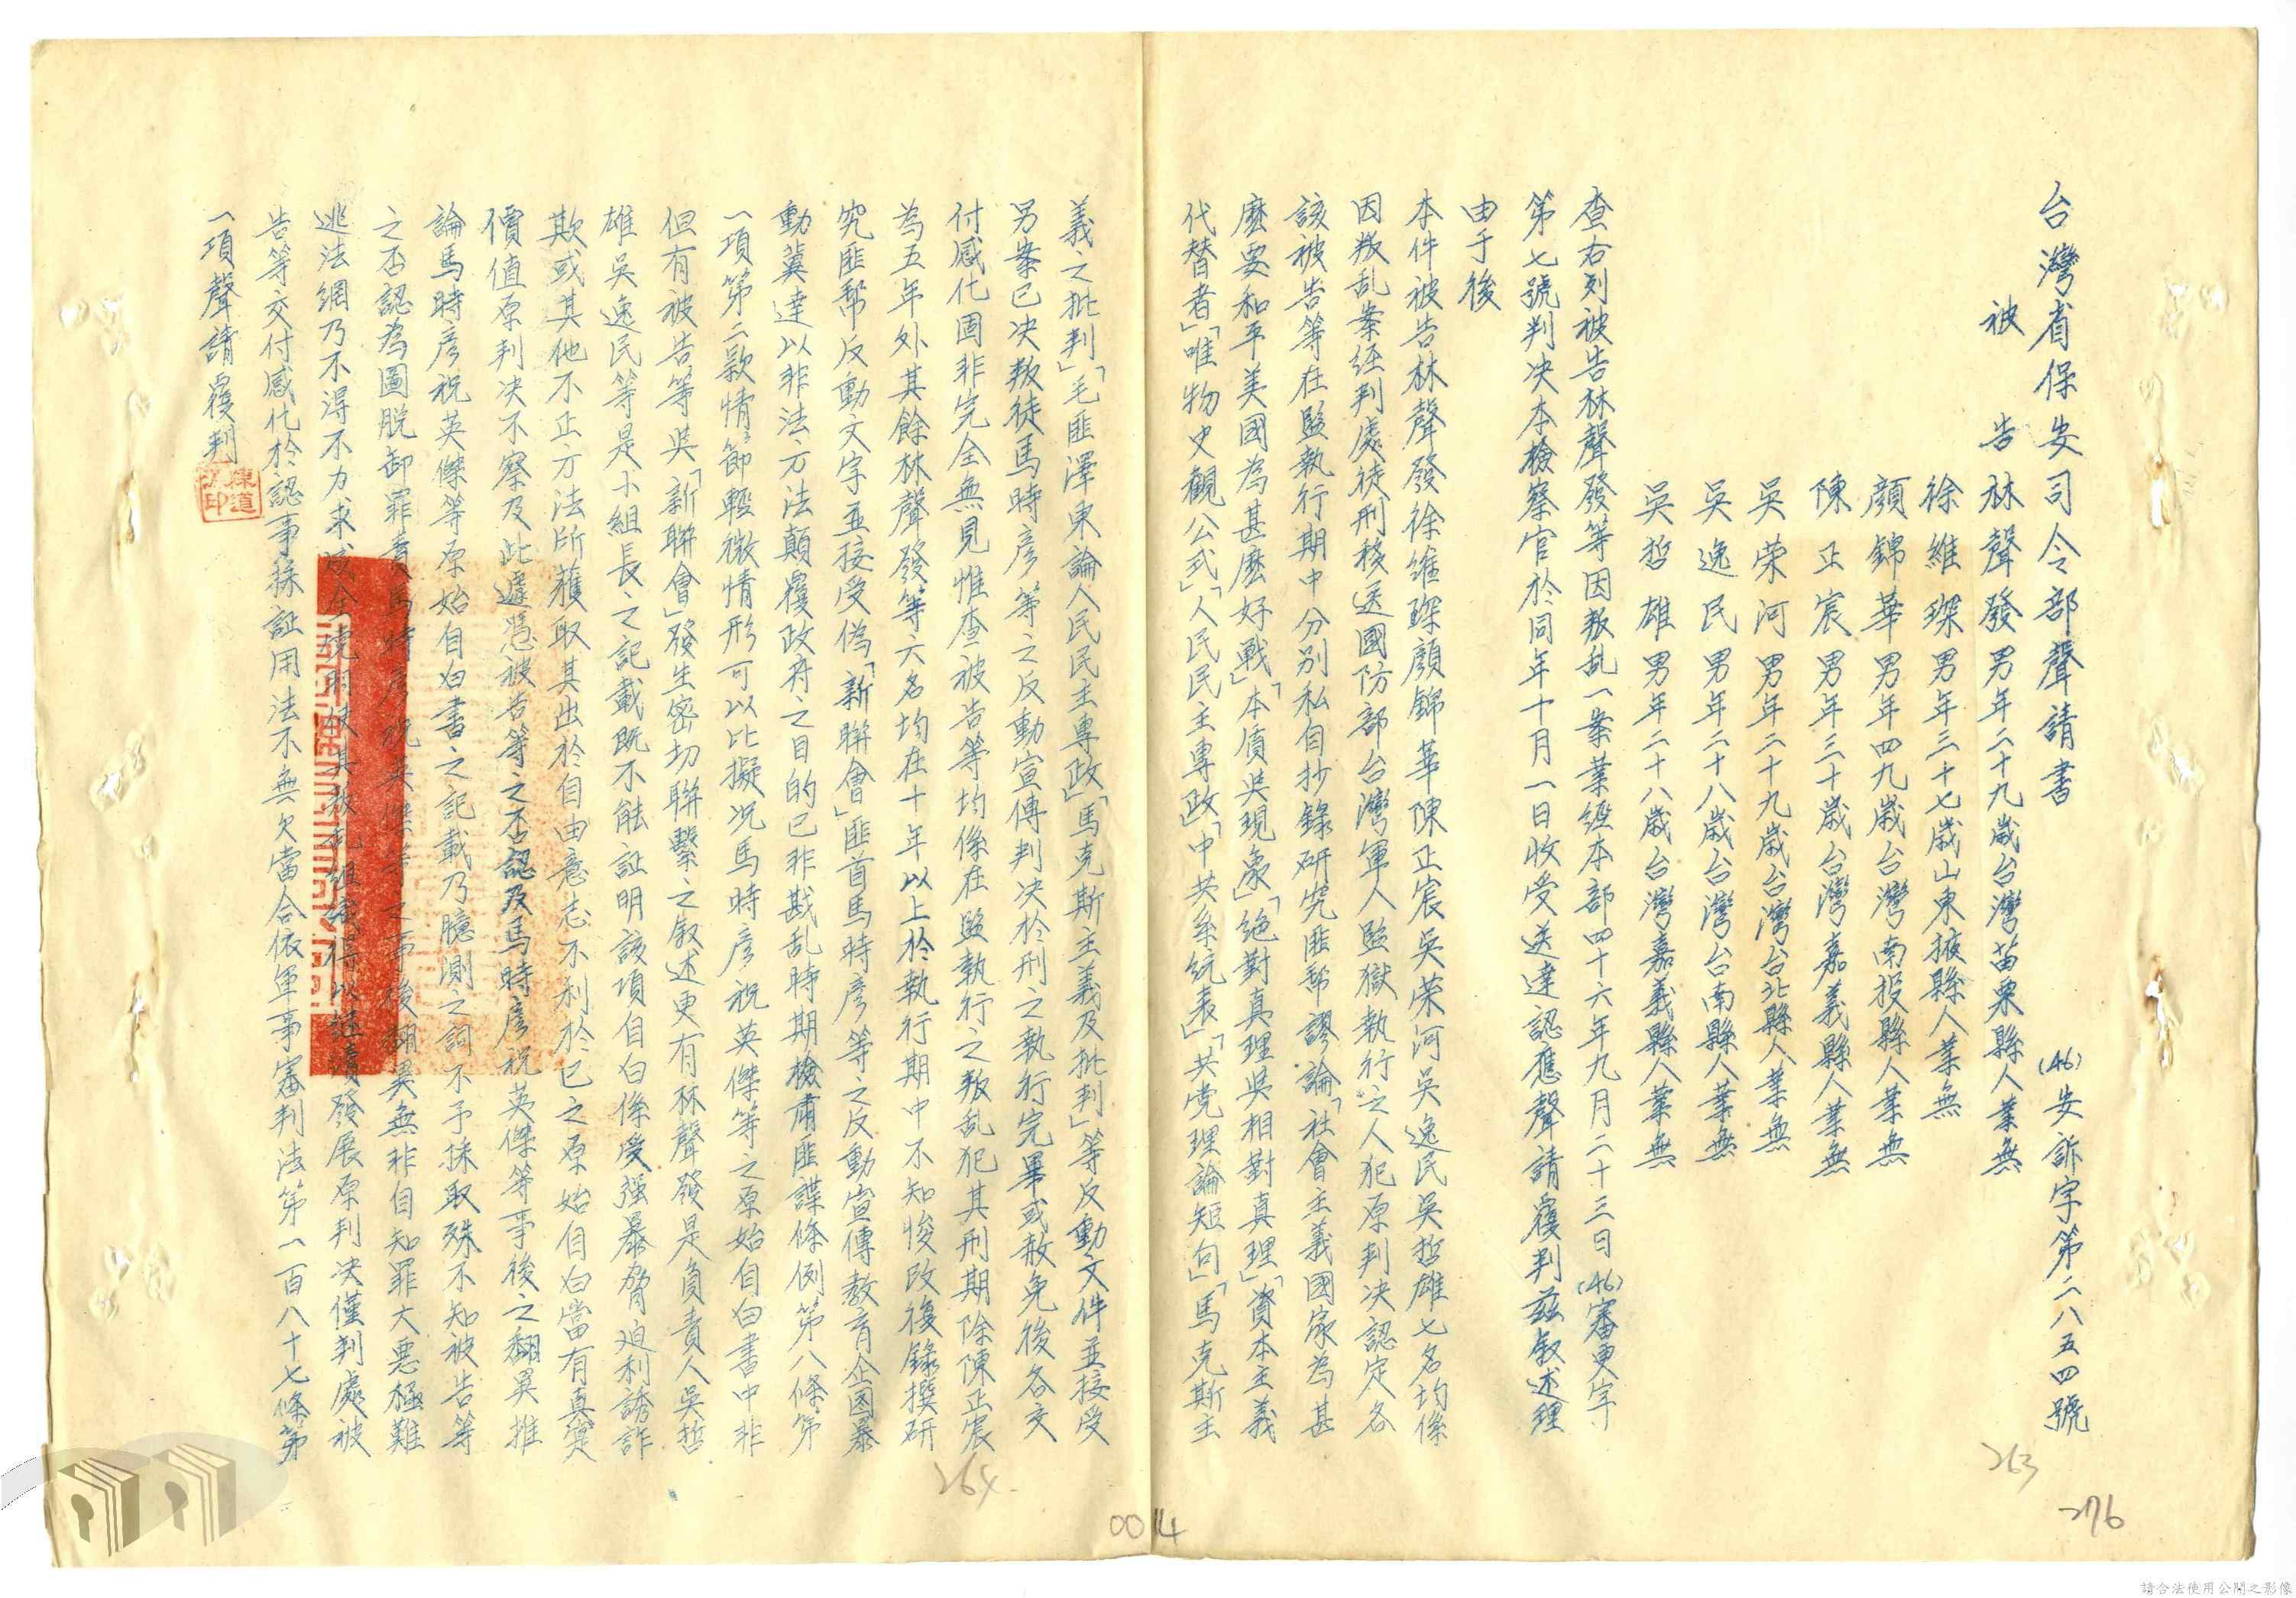 台灣省保安司令部聲請書
(46)安訴字第二八五四號
被告 林聲發 男年二十九歲台灣苗栗縣人業無
徐維琛 男年三十七歲山東掖縣人業無
顏錦華 男年四九歲台灣南投縣人業無
陳正宸 男年三十歲台灣嘉義縣人業無
吳榮河 男年二十九歲台灣台北縣人業無
吳逸民 男年二十八歲台灣台南縣人業無
吳哲雄 男年二十八歲台灣嘉義縣人業無
查右列被告林聲發等因叛乱一案業經本部四十六年九月二十三日(46)審更字
第七號判决本檢察官於同年十月一日收受送達認應聲請覆判茲叙述理
由于後
本件被告林聲發徐維琛顏錦華陳正宸吳榮河吳逸民吳哲雄七名均係
因叛乱案經判處徒刑移送國防部台灣軍人監獄執行之人犯原判决認定各
該被告等在監執行期中分别私自抄錄研究匪幫謬論「社會主義國家為甚
麽要和平美國為甚麽好戰」「本質與現象」「絕對真理與相對真理」「資本主義
代替者」「唯物史觀公式」「人民民主專政」「中共系統表」「共党理論短句」「馬克斯主
義之批判」「毛匪澤東論人民民主專政」「馬克斯主義及批判」等反動文件並接受
另案已决叛徒馬時彥等之反動宣傳判决於刑之執行完畢或赦免後各交
付感化固非完全無見惟查被告等均係在監執行之叛乱犯其刑期除陳正宸
為五年外其餘林聲發等六名均在十年以上於執行期中不知悛改復錄撰研
究匪幫反動文字並接受偽「新聯會」匪首馬時彥等之反動宣傳教育企图暴
動冀達以非法方法顛覆政府之目的已非戡乱時期檢肅匪諜條例第八條第
一項第二款情節輕微情形可以比擬况馬時彥祝英傑等之原始自白書中非
但有被告等與「新聯會」發生密切聯繫之叙述更有林聲發是負責人吳哲
雄吳逸民等是小組長之記載既不能証明該項自白係受强暴脅迫利誘詐
欺或其他不正方法所獲取其出於自由意志不利於已之原始自白當有真實
價值原判决不察及此遽憑被告等之不認及馬時彥祝英傑等事後之翻異推
論馬時彥祝英傑等原始自白書之記載乃臆測之詞不予採取殊不知被告等
之否認為圖脫卸罪責馬時彥祝英傑等之事後翻異無非自知罪大悪極難
逃法網乃不得不力求成全使其叛乱組織得以继續發展原判决僅判處被
告等交付感化於認事採証用法不無欠當合依軍事審判法第一百八十七條第
一項聲請覆判
263
276
264
0014
請合法使用公開之影像